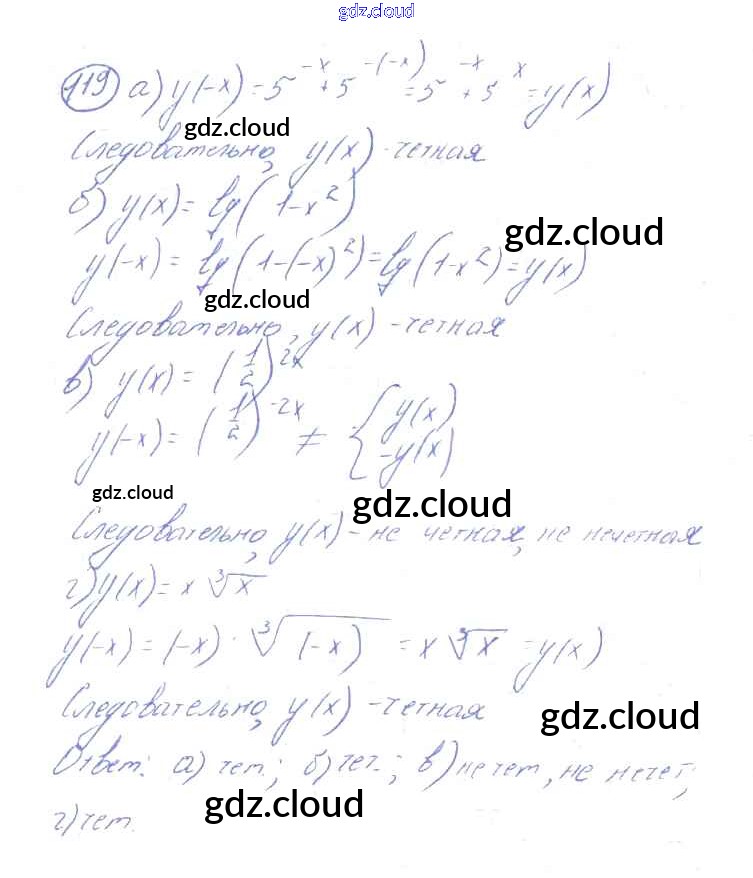 gdz.cloud
119 а) y(-x) = 5^-x + 5^-(-x) = 5^-x + 5^x = y(x)
gdz.cloud
Следовательно, y(x) - четная
б) y(x) = lg(1-x²)
gdz.cloud
y(-x) = lg(1-(-x)²) = lg(1-x²) = y(x)
gdz.cloud
Следовательно, y(x) - четная
в) y(x) = (1/2)^2x
y(-x) = (1/2)^-2x ≠ { y(x)
-y(x)
gdz.cloud
gdz.cloud
Следовательно, y(x) - не четная, не нечетная
г) y(x) = x ∛x
y(-x) = (-x) · ∛(-x) = x ∛x = y(x)
Следовательно, y(x) - четная
gdz.cloud
Ответ: а) чет; б) чет.; в) не чет, не нечет;
gdz.cloud
г) чет.